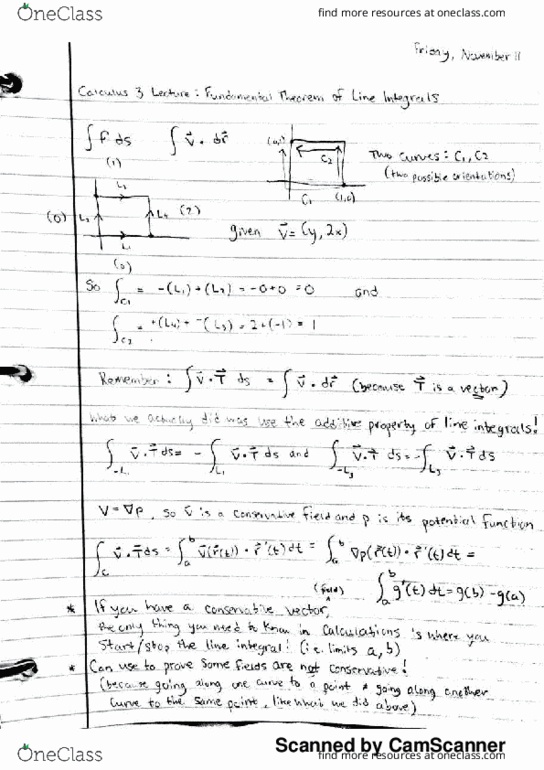 OneClass find more resources at oneclass.com
Friday, November 11
Calculus 3 Lecture: Fundamental Theorem of Line Integrals
∫ f ds ∫ v⃗ · dr⃗
(1)
C2
Two curves: C1, C2
(two possible orientations)
C1 (1,0)
(0) L3 L4 (2)
L1
(0)
given v⃗ = (y, 2x)
So ∫C1 = -(L1) + (L2) = -0+0 = 0 and
∫C2 = +(L4) + -(L3) = 2+(-1) = 1
Remember: ∫ v⃗ · T⃗ ds = ∫ v⃗ · dr⃗ (because T⃗ is a vector)
What we actually did was use the additive property of line integrals!
∫-L1 v⃗ · T⃗ ds = - ∫L1 v⃗ · T⃗ ds and ∫-L3 v⃗ · T⃗ ds = - ∫L3 v⃗ · T⃗ ds
V = ∇p, so v⃗ is a conservative field and p is its potential function
∫C v⃗ · T⃗ ds = ∫a^b v⃗(r⃗(t)) · r⃗'(t) dt = ∫a^b ∇p(r⃗(t)) · r⃗'(t) dt =
∫a^b g'(t) dt = g(b) - g(a)
(field)
* If you have a conservative vector,
the only thing you need to know in calculations is where you
start/stop the line integral! (i.e. limits a, b)
* Can use to prove some fields are not conservative!
(because going along one curve to a point ≠ going along another
curve to the same point, like what we did above)
Scanned by CamScanner
OneClass find more resources at oneclass.com